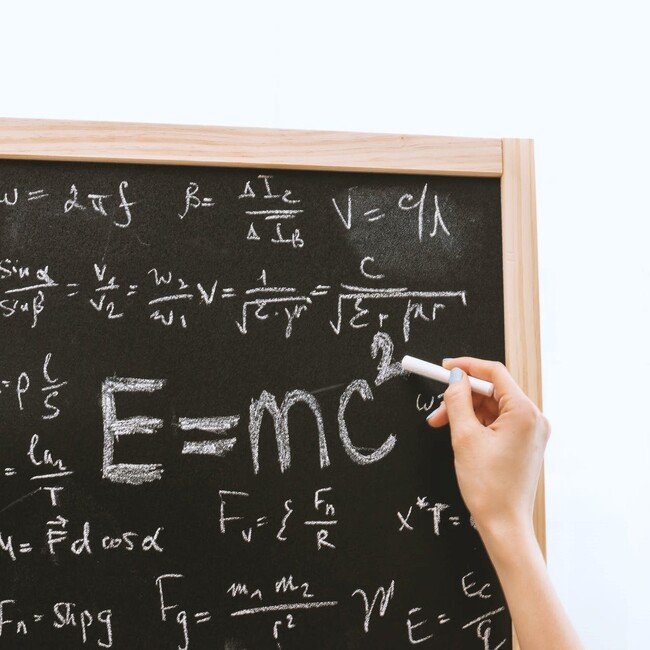 ω = 2πf β = ΔI₂ / ΔI_B V = c/λ
sin α / sin β = v₁ / v₂ = w₂ / w₁ V = 1 / √ε·μr = c / √εr μr
= ρ l / S
E = mc²
= ln₂ / T
F_v = { F_n / R x*T =
= F⃗ d cos α
F_n = shρg F_g = m₁ m₂ / r² E = E_c / q